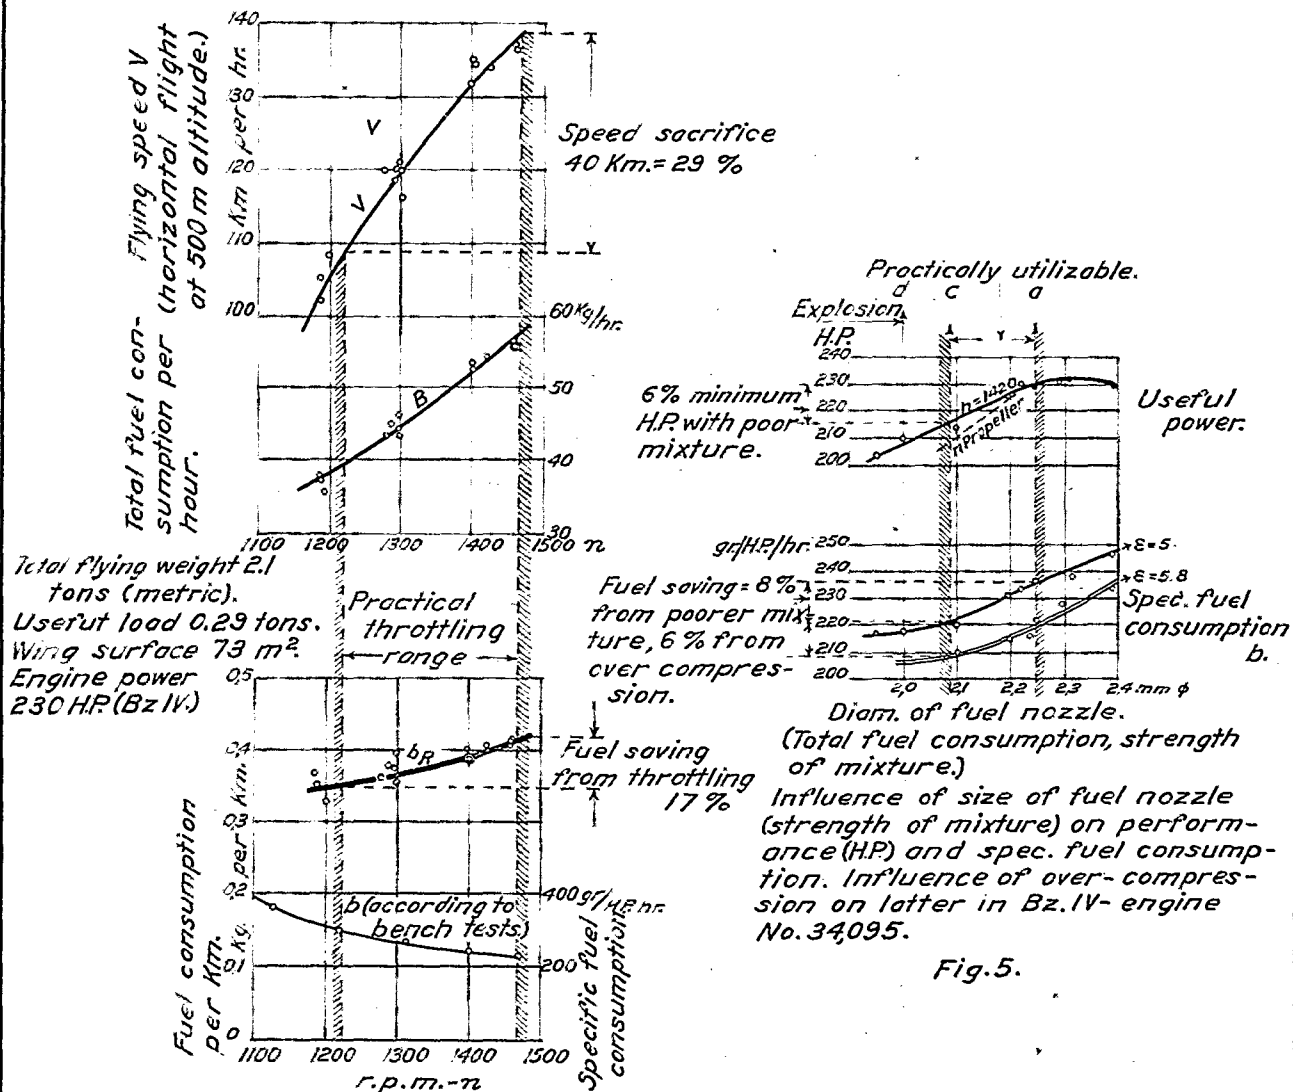 Flying speed V
(horizontal flight
at 500 m altitude.)
Total fuel con-
sumption per
hour.
Km per hr.
140
130
120
110
100
V
V
Speed sacrifice
40 Km.= 29 %
60 Kg/hr.
50
40
30
B
1100 1200 1300 1400 1500 n
Total flying weight 2.1
tons (metric).
Useful load 0.29 tons.
Wing surface 73 m².
Engine power
230 H.P. (Bz IV.)
Practical
throttling
range
Fuel consumption
per Km.
Kg. per Km.
0,5
0,4
0,3
0,2
0,1
0
bR
Fuel saving
from throttling
17 %
b (according to
bench tests)
400 gr/H.P. hr.
200
Specific fuel
consumption
1100 1200 1300 1400 1500
r.p.m.-n
Practically utilizable.
d c a
Explosion
H.P.
240
230
220
210
200
n=1420
n Propeller
6 % minimum
H.P. with poor
mixture.
Useful
power.
gr/H.P./hr. 250
240
230
220
210
200
ε=5.
ε=5.8
Fuel saving = 8 %
from poorer mix-
ture, 6 % from
over compres-
sion.
Spec. fuel
consumption
b.
2,0 2,1 2,2 2,3 2,4 mm φ
Diam. of fuel nozzle.
(Total fuel consumption, strength
of mixture.)
Influence of size of fuel nozzle
(strength of mixture) on perform-
ance (H.P.) and spec. fuel consump-
tion. Influence of over-compres-
sion on latter in Bz. IV- engine
No. 34,095.
Fig. 5.